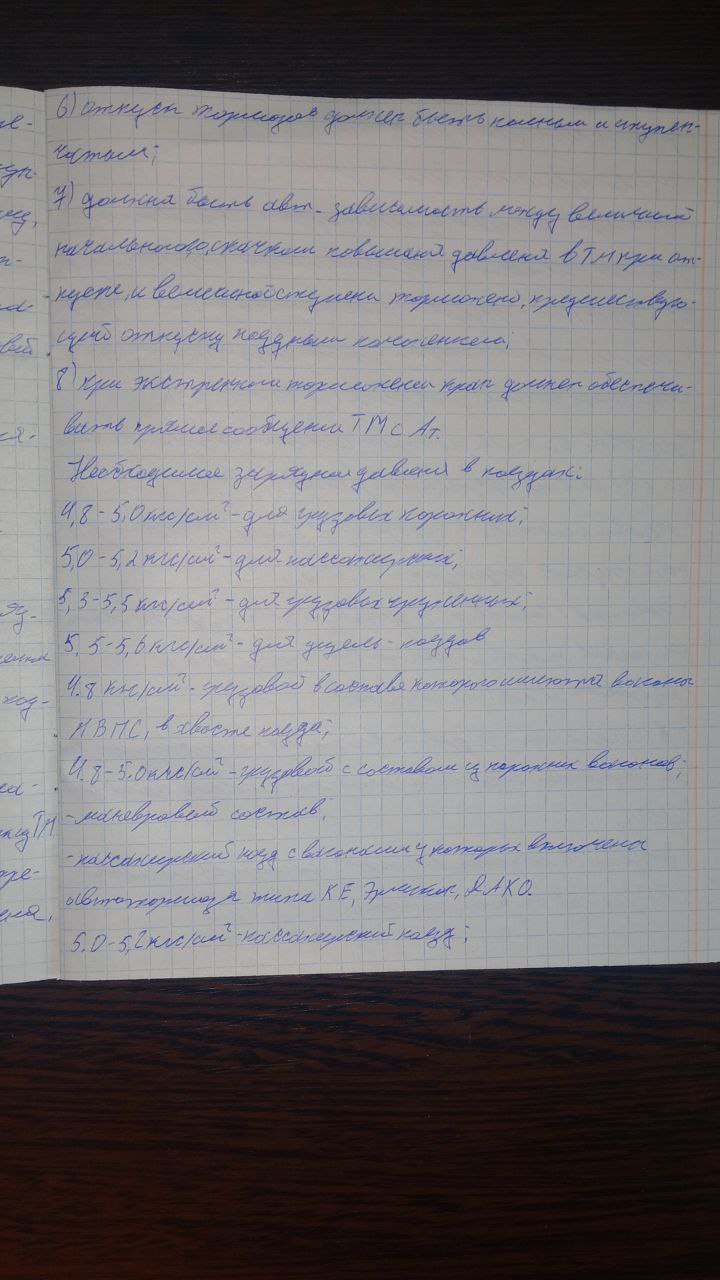 6) отпуск тормозов должен быть полным и ступен-
чатым;
7) должна быть авт. зависимость между величиной
начального скачком повышения давления в ТМ при от-
пуске, и величиной ступени торможено, предшествую-
щей отпуску поездным положением;
8) при экстренном торможении кран должен обеспечи-
вать прямое сообщение ТМ с Ат.
Необходимое зарядное давление в поездах:
4,8-5,0 кгс/см² - для грузовых порожних;
5,0-5,2 кгс/см² - для пассажирных;
5,3-5,5 кгс/см² - для грузовых груженных;
5,5-5,6 кгс/см² - для поездов
4.8 кгс/см² - грузовой в составе которого имеются вагоны
КВПС, в хвосте поезда;
4.8-5.0 кгс/см² - грузовой с составом из порожних вагонов;
- маневровый состав;
- пассажирский поезд с вагонами у которых включены
автотормоза типа КЕ, Эрликон, ДАКО.
5.0-5,2 кгс/см² - пассажирский поезд;